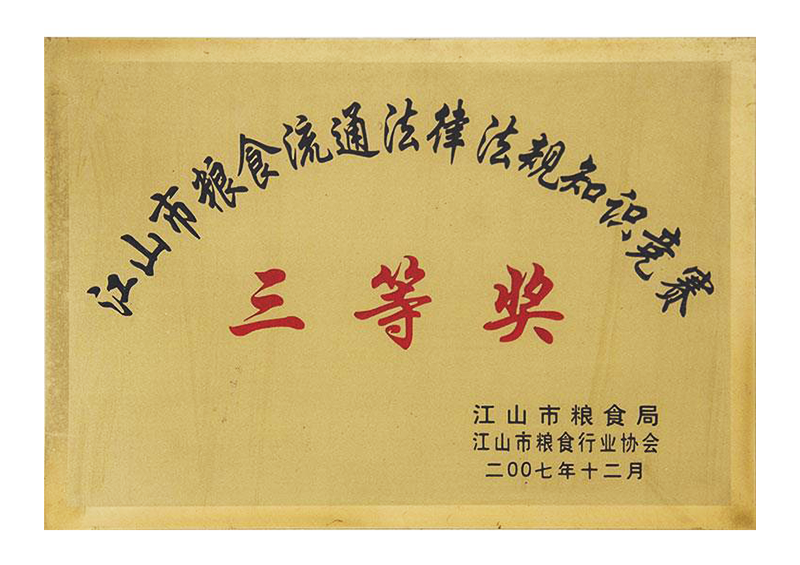 江山市粮食流通法律法规知识竞赛
三等奖
江山市粮食局
江山市粮食行业协会
二00七年十二月